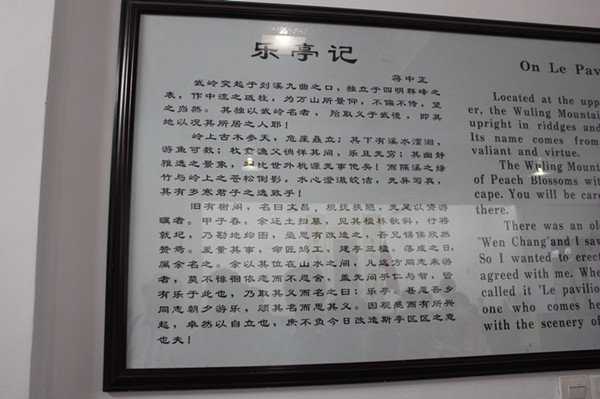 乐亭记
蒋中正
武岭突起于剡溪九曲之口，独立于四明群峰之
表，作中流之砥柱，为万山所景仰，不偏不倚，望
之岿然。其独以武岭名者，殆取义于武德，即其
地以况其所居之人耶！
岭上古木参天，危崖矗立；其下有溪水潆洄，
游鱼可数；牧童渔父徜徉其间，乐且无穷；其幽静
雅逸之景象，比世外桃源无事他求！而隔溪之绿
竹与岭上之苍松倒影，水心澄澈皎洁，无异写真，
其有岁寒君子之逸致乎！
旧有榭阁，名曰文昌，规抚狭陋，无足以资游
瞩者。甲子春，余还土扫墓，见其楹栋欹斜，行将
就圮，乃勘地绘图，亟思有改造之，吾兄锡侯欣然
赞焉。爰董其事，命匠鸠工，建亭三楹。落成之日，
属余名之。余以其位在山水之间，凡远方同志来游
者，莫不徘徊依恋而不忍舍，盖无间乎仁与智，皆
有乐于此也，乃取其义而名之曰：乐亭。甚愿吾乡
同志朝夕游乐，顾其名而思其义。因观感而有所兴
起，卓然以自立也，庶不负今日改造斯亭区区之意
也夫！
On Le Pav
Located at the upp
er, the Wuling Mountai
upright in riddges and
Its name comes from
valiant and virtue.
The Wuling Moun
of Peach Blossoms with
cape. You will be care
there.
There was an old
"Wen Chang" and I saw
So I wanted to erect
agreed with me. Whe
called it 'Le pavilio
one who comes he
with the scenery of